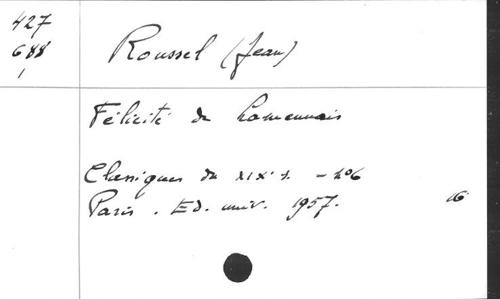 427
688
1
Roussel (Jean)
Félicité de Lamennais
Classiques du XIXe s. - n°6
Paris. Ed. univ. 1957. 16